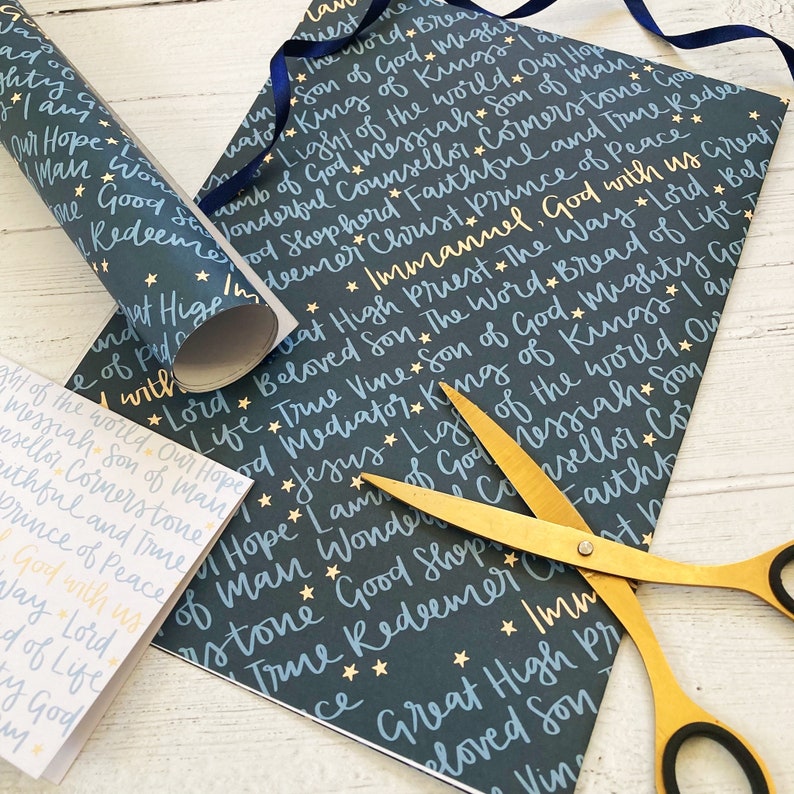 Mighty G
I am
Our Hope
Man Won
one Good S
Redeemer
Great High
Im
Great
the Word
Son of God Mighty
King of Kings I am
Light of the world Our Hope
Lamb of God Messiah Son of Man
Wonderful Counsellor Cornerstone Good
Good Shepherd Faithful and True Redeemer
Redeemer Christ Prince of Peace
Immanuel, God with us
Great High Priest The Way Lord Beloved
Beloved Son The Word Bread of Life
True Vine Son of God Mighty God
Lord
Life
Mediator King of Kings I am
d with
Jesus Light of the world Our
God Messiah Son
Hope Lamb of
Wonderful
Counsellor
of Man
Good Shep
Faith
Christ
stone
True Redeemer
Imm
Great High Pri
eloved Son T
Vine
ght of the world Our Hope
Messiah Son of Man
nsellor Cornerstone
aithful and True
Prince of Peace
l, God with us
Way Lord
ad of Life
ghty God
am